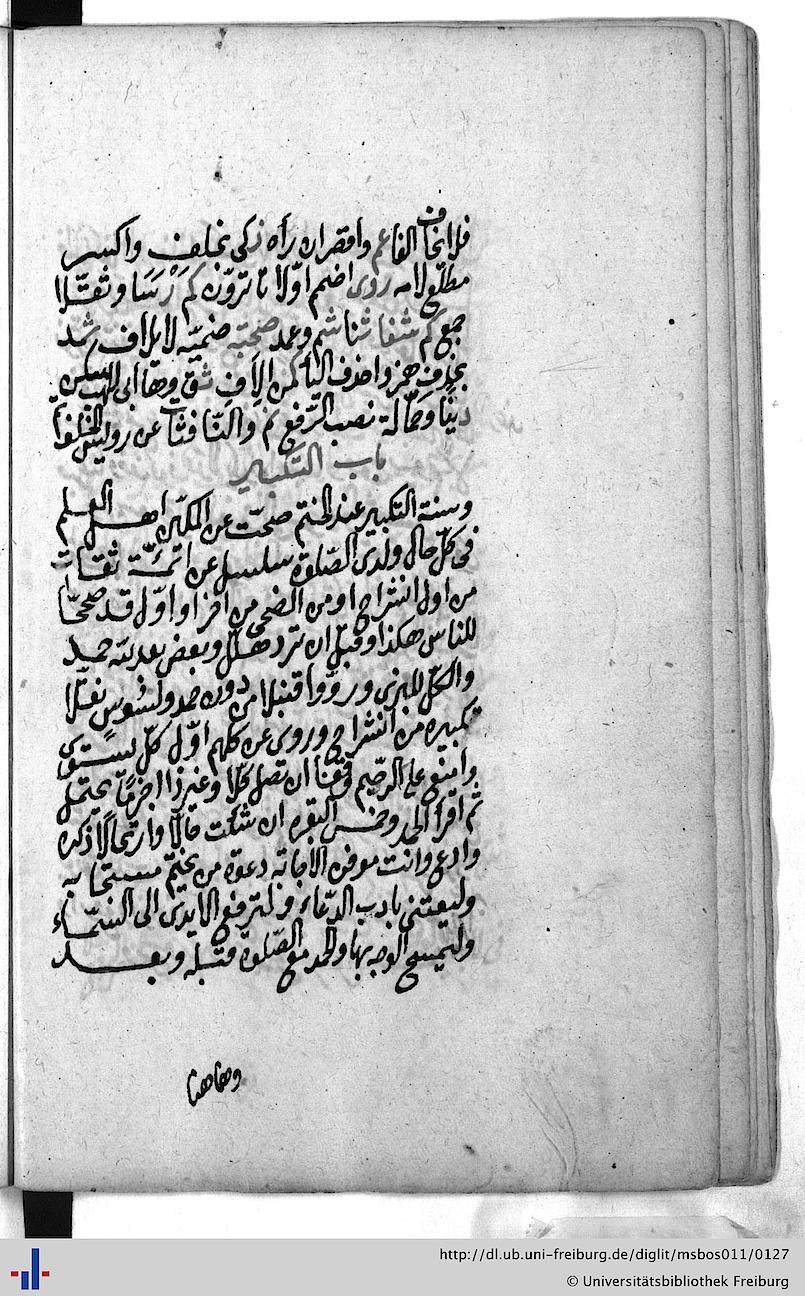 فلا يخاف الفا عم واقصر ان رآه زكى بخلف واكسر
مطلع لامه روى اضمم اولا تا ترون كم رسا وثقلا
جمع كم شفا ثنا شم وعمد صحبة ضميه لايلاف رشد
بحذف همز واحذف اليا كمن الاف ثق وها ابى لهب سكن
دينا وحمالة نصب الرفع نم والنافثات عن رويس الخلف
باب التكبير
وسنة التكبير عند الختم صحت عن المكين اهل العلم
فى كل حال ولدى الصلوة سلسل عن ائمة ثقات
من اول انشراح او من الضحى من اخر او اول قد صححا
للناس هكذا وقبل ان ترد هلل وبعض بعد لله حمد
والكل للبزى ورووا قنبلا من دون حمد ولسوس نقلا
تكبيره من انشراح وروى عن كلهم اول كل يستوى
وامنع على الرحيم وقفا ان تصل كلا وغير ذا اجز ما يحتمل
ثم اقرا الحمد وخمس البقره ان شئت حالا وارتحالا ذكره
وادع وانت موقن الاجابه دعوة من يختم مستجابه
وليعتنى بادب الدعاء ولترفع الايدى الى السماء
وليمسح الوجه بها والحمد مع الصلوة قبله وبعد
وهاهنا
http://dl.ub.uni-freiburg.de/diglit/msbos011/0127
© Universitätsbibliothek Freiburg